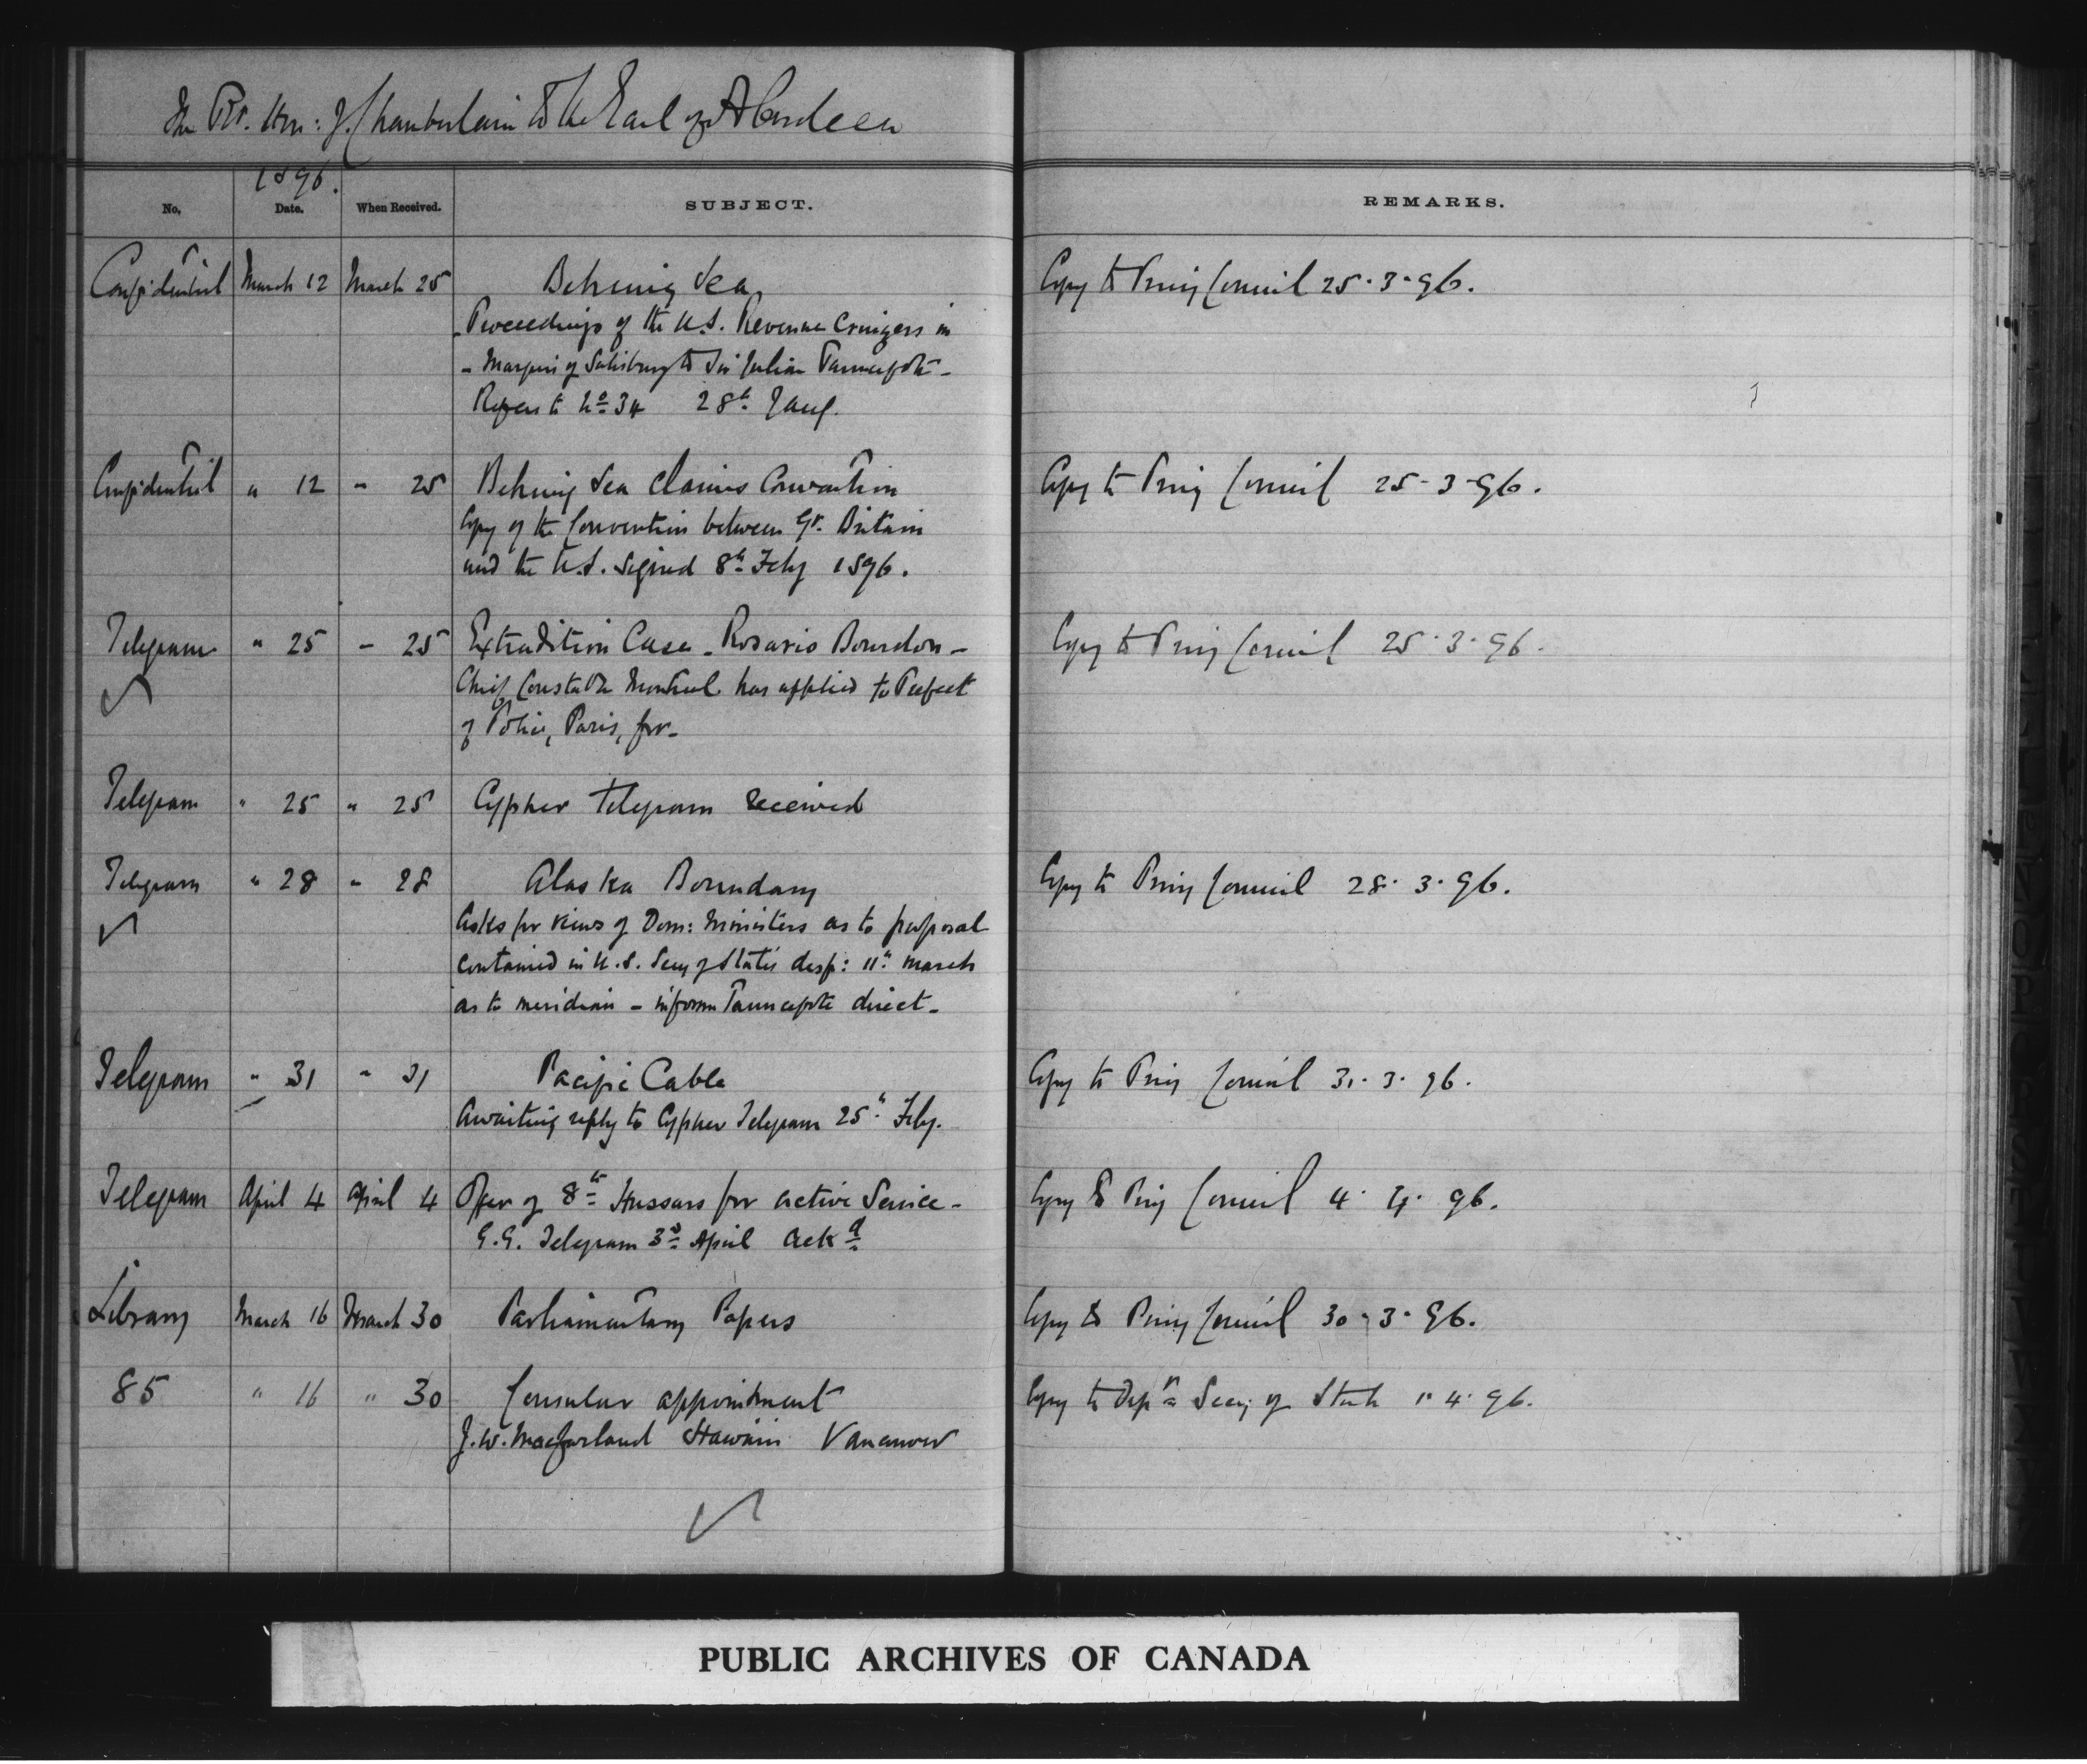 The Rt. Hon: J. Chamberlain to the Earl of Aberdeen
1896.
No. Date. When Received. SUBJECT. REMARKS.
Confidential March 12 March 25 Behring Sea, Copy to Privy Council 25.3.96.
Proceedings of the U.S. Revenue Cruizers in
- Marquis of Salisbury to Sir Julian Pauncefote -
Refers to No 34 28th Jany.
Confidential " 12 " 25 Behring Sea Claims Convention Copy to Privy Council 25-3-96.
Copy of the Convention between Gt. Britain
and the U.S. signed 8th Feby 1896.
Telegram " 25 - 25 Extradition Case - Rosario Bourdon - Copy to Privy Council 25.3.96.
Chief Constable Montreal has applied to Prefect
of Police, Paris, for -
Telegram " 25 " 25 Cypher Telegram received
Telegram " 28 " 28 Alaska Boundary Copy to Privy Council 28.3.96.
Asks for views of Dom: Ministers as to proposal
contained in U.S. Secy of State's desp: 11th March
as to meridian - inform Pauncefote direct -
Telegram " 31 " 31 Pacific Cable Copy to Privy Council 31.3.96.
Awaiting reply to Cypher Telegram 25th Feby.
Telegram April 4 April 4 Offer of 8th Hussars for active Service - Copy to Privy Council 4.4.96.
G.G. Telegram 3rd April ackd
Library March 16 March 30 Parliamentary Papers Copy to Privy Council 30.3.96.
85 " 16 " 30 Consular appointment Copy to Secy of State 1.4.96.
J.W. Macfarland Hawaii Vancouver
PUBLIC ARCHIVES OF CANADA